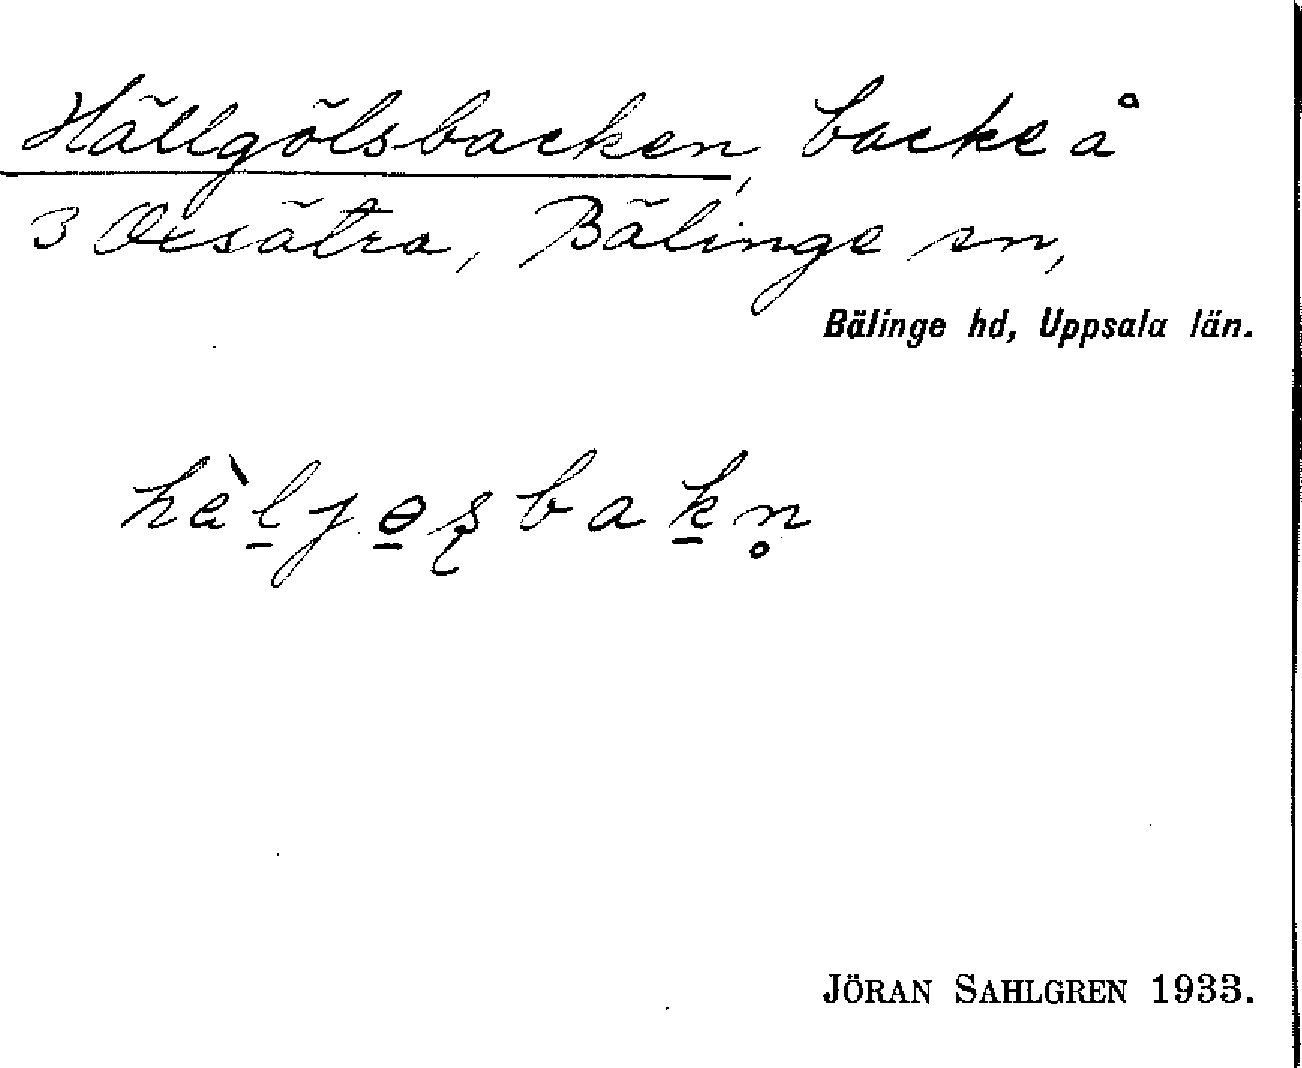 Hällgölsbacken, backe å
3 Oxsätra, Bälinge sn,
Bälinge hd, Uppsala län.
JÖRAN SAHLGREN 1933.